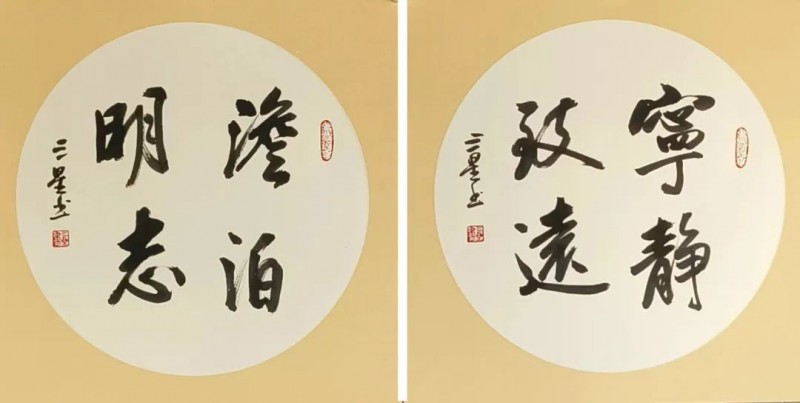 澹泊
明志
三星书
寧静
致遠
三星书